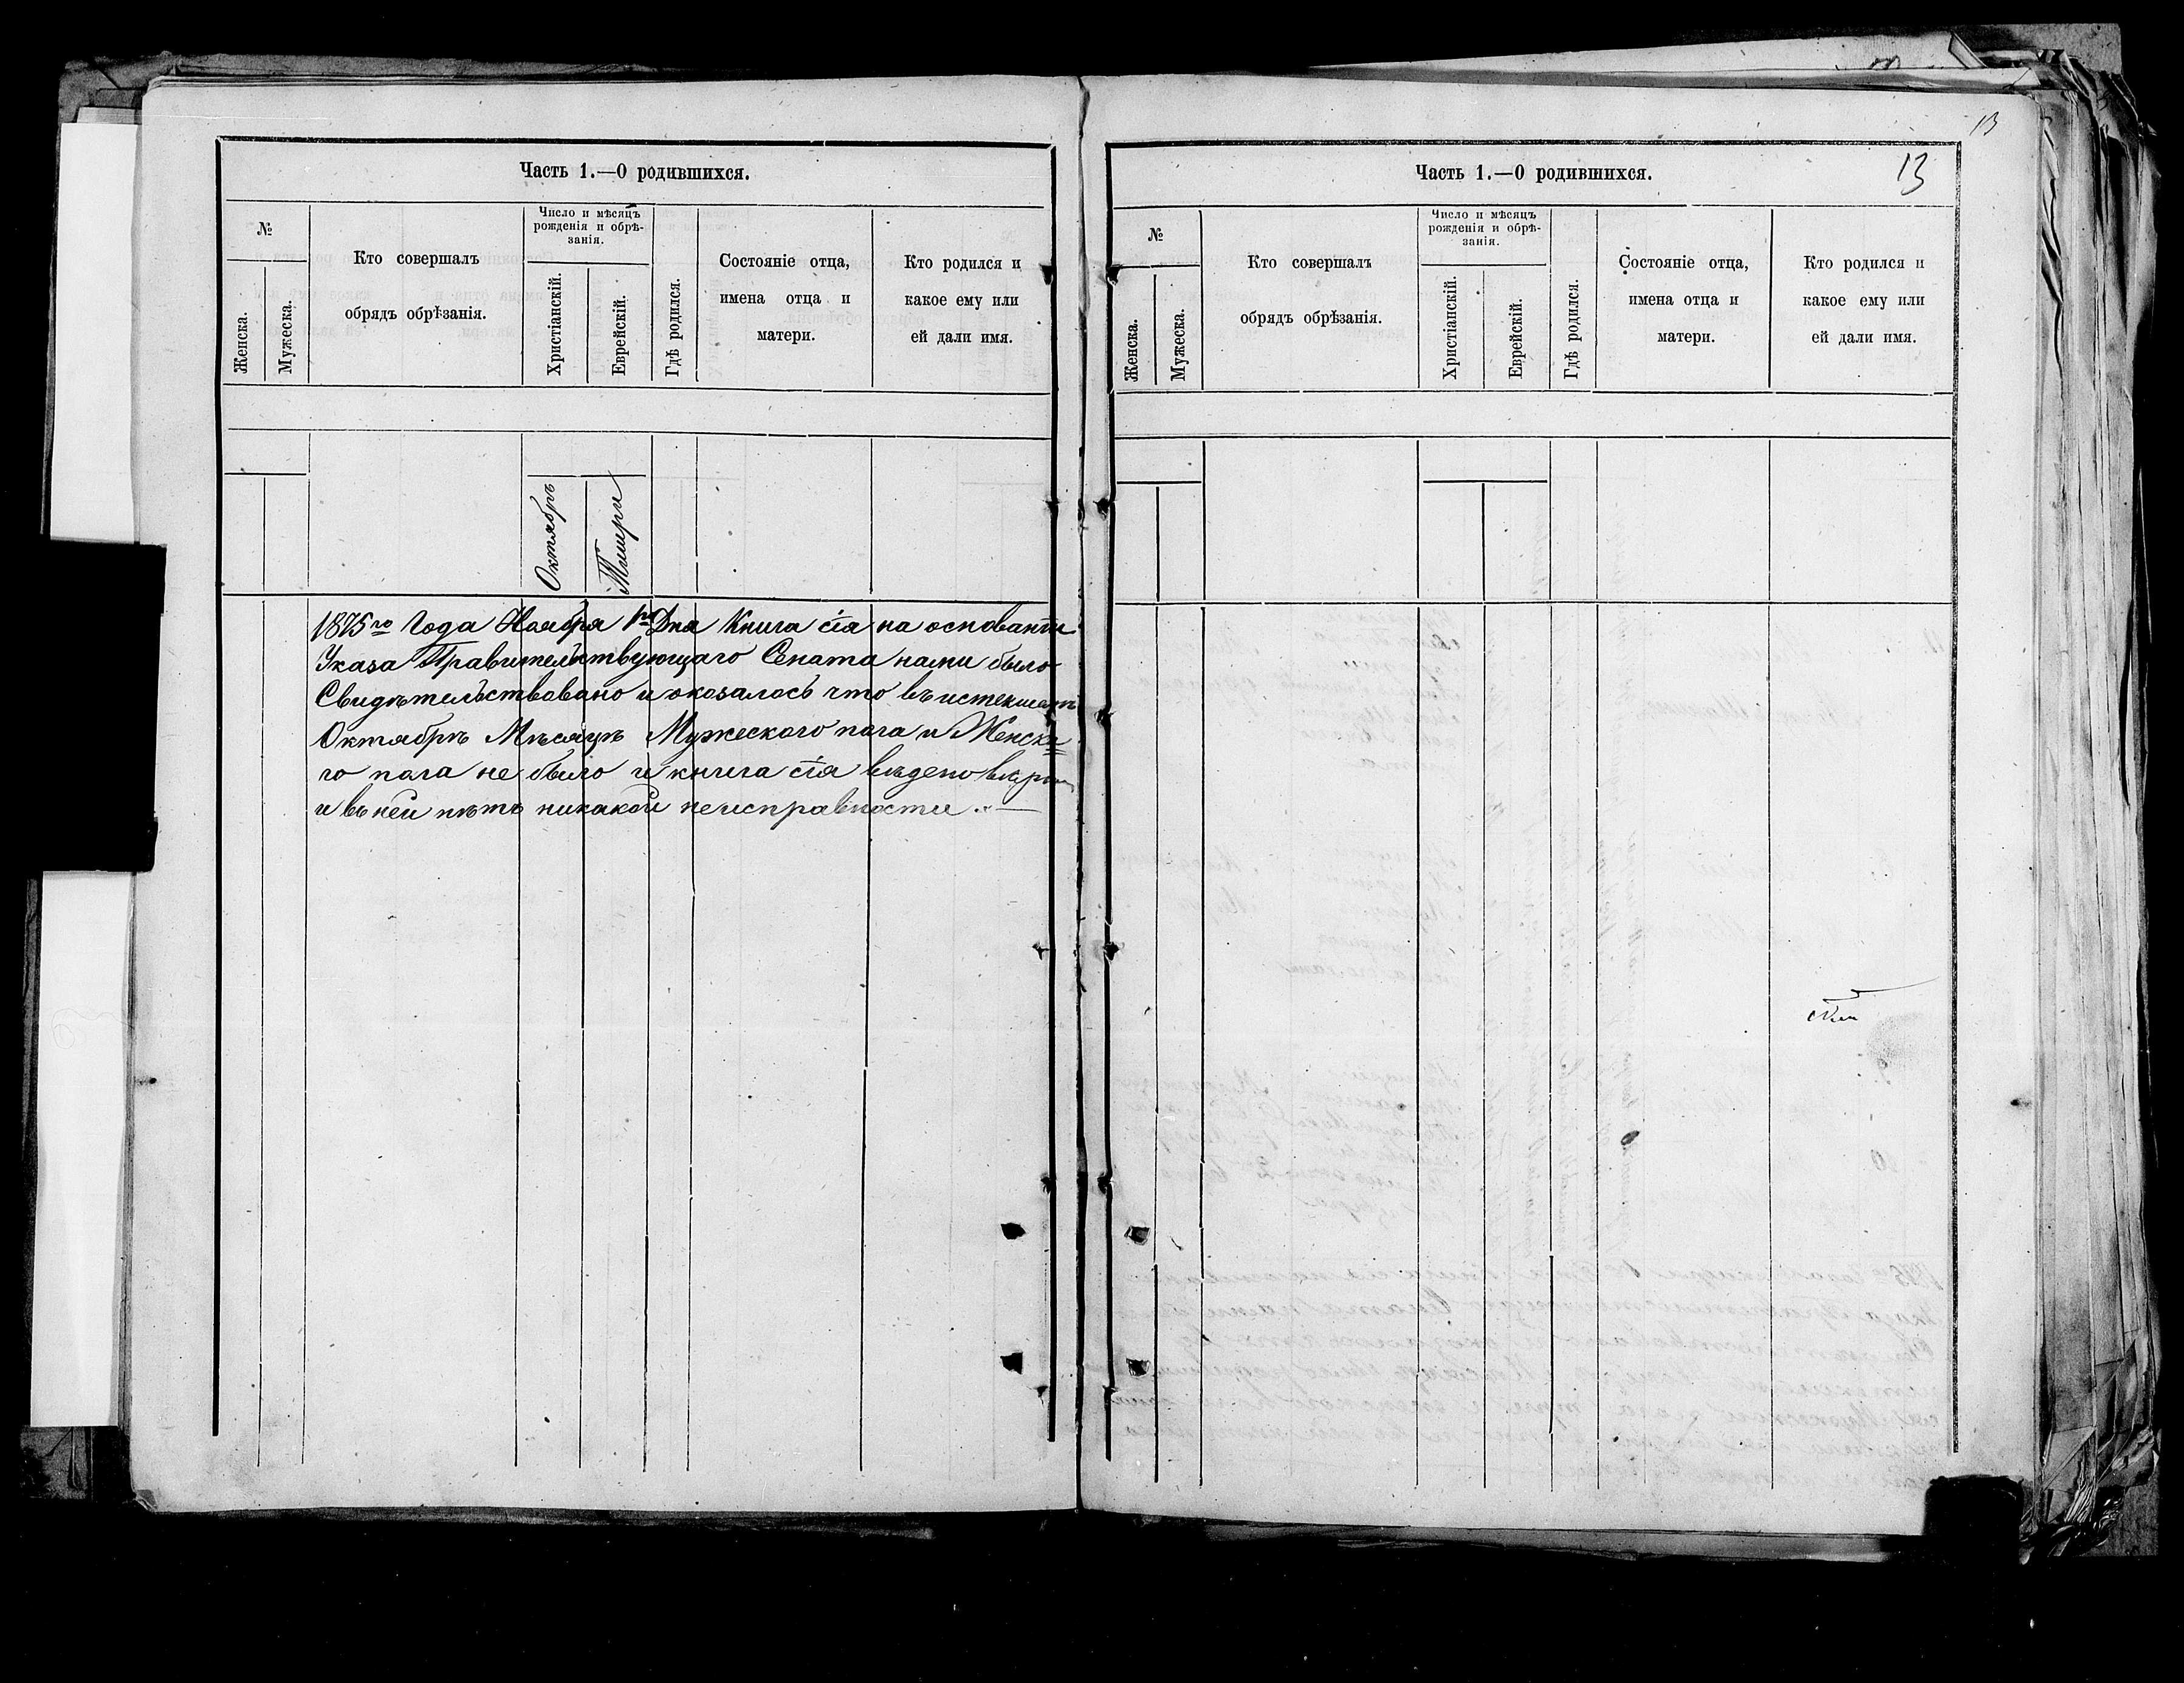 13
Часть 1.—О родившихся.
№
Женска.
Мужеска.
Кто совершалъ
обрядъ обрѣзанія.
Число и мѣсяцъ
рожденія и обрѣ-
занія.
Христіанскій.
Еврейскій.
Гдѣ родился.
Состояніе отца,
имена отца и
матери.
Кто родился и
какое ему или
ей дали имя.
Октябрь
Тишри
1875го Года Ноября 1го Дня Книга сія на основаніи
Указа Правительствующаго Сената нами было
Свидѣтельствовано и оказалось что въ истекшемъ
Октябрѣ Мѣсяцѣ Мужескаго пола и Женска
го пола не было и книга сія ведено
и въ ней нѣтъ никакой неисправности. —
Часть 1.—О родившихся.
13
№
Женска.
Мужеска.
Кто совершалъ
обрядъ обрѣзанія.
Число и мѣсяцъ
рожденія и обрѣ-
занія.
Христіанскій.
Еврейскій.
Гдѣ родился.
Состояніе отца,
имена отца и
матери.
Кто родился и
какое ему или
ей дали имя.